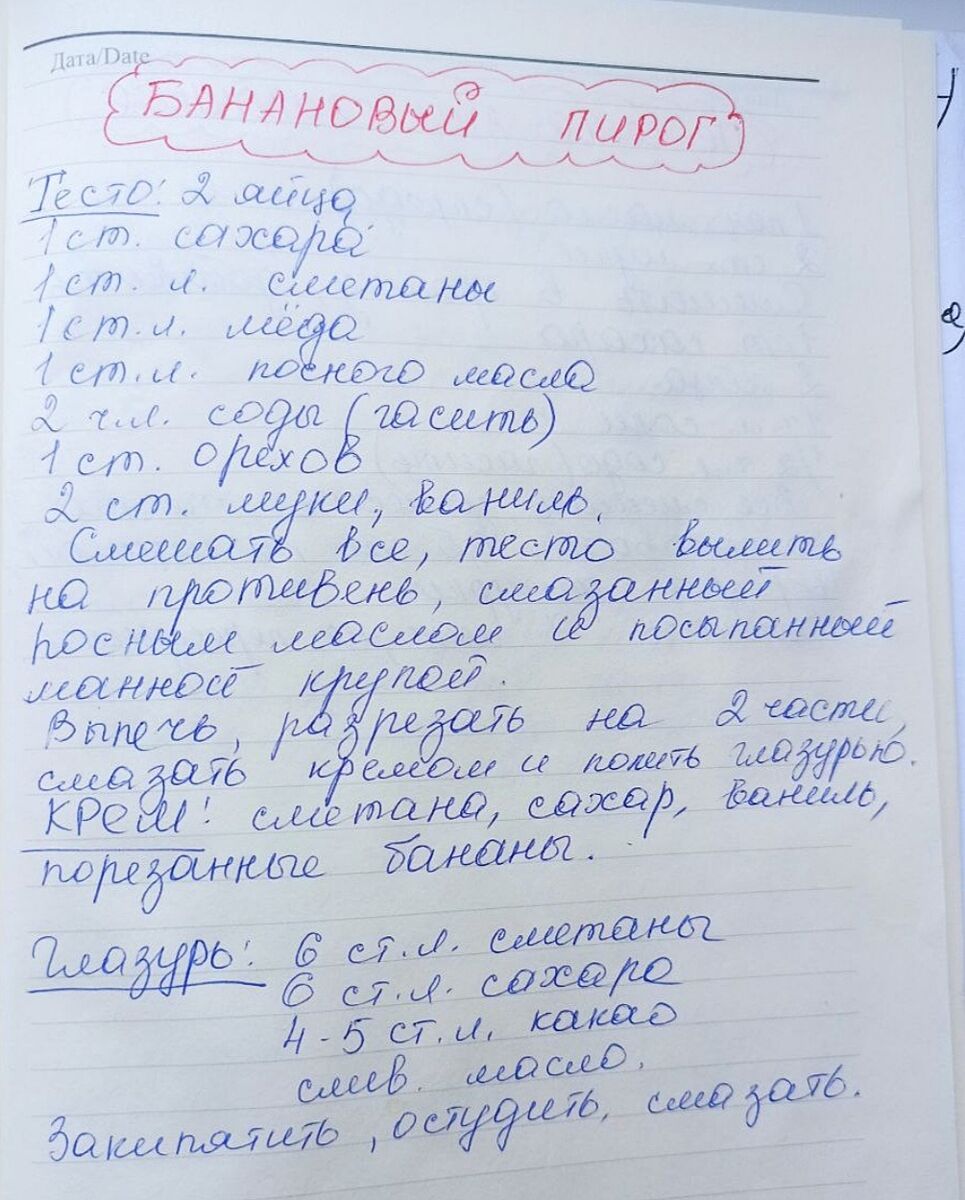 Дата/Date
БАНАНОВЫЙ ПИРОГ
Тесто: 2 яйца
1 ст. сахара
1 ст. л. сметаны
1 ст. л. мёда
1 ст. л. посного масла
2 ч.л. соды (гасить)
1 ст. орехов
2 ст. муки, ваниль.
Смешать все, тесто вылить
на противень, смазанный
посным маслом и посыпанный
манной крупой.
Выпечь, разрезать на 2 части,
смазать кремом и полить глазурью.
КРЕМ: сметана, сахар, ваниль,
порезанные бананы.
Глазурь: 6 ст. л. сметаны
6 ст. л. сахара
4-5 ст. л. какао
слив. масло.
Закипятить, остудить, смазать.